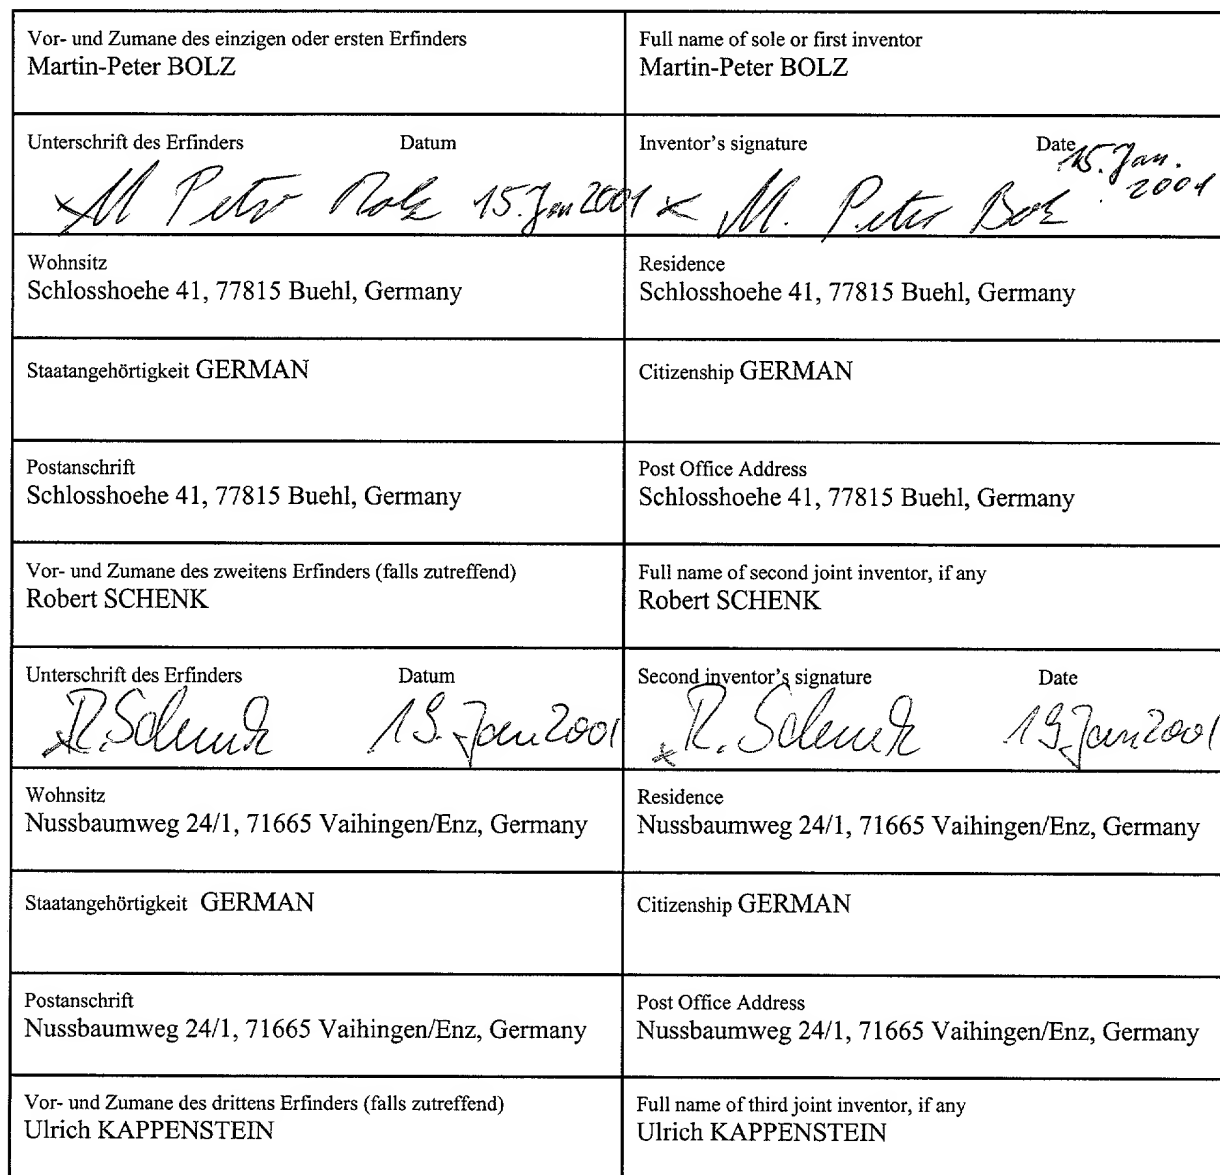 Vor- und Zumane des einzigen oder ersten Erfinders
Martin-Peter BOLZ
Full name of sole or first inventor
Martin-Peter BOLZ
Unterschrift des Erfinders Datum
M Peter Bolz 15. Jan 2001
Inventor's signature Date
M. Peter Bolz 15. Jan. 2001
Wohnsitz
Schlosshoehe 41, 77815 Buehl, Germany
Residence
Schlosshoehe 41, 77815 Buehl, Germany
Staatangehörtigkeit GERMAN
Citizenship GERMAN
Postanschrift
Schlosshoehe 41, 77815 Buehl, Germany
Post Office Address
Schlosshoehe 41, 77815 Buehl, Germany
Vor- und Zumane des zweitens Erfinders (falls zutreffend)
Robert SCHENK
Full name of second joint inventor, if any
Robert SCHENK
Unterschrift des Erfinders Datum
R. Schenk 19. Jan 2001
Second inventor's signature Date
R. Schenk 19. Jan 2001
Wohnsitz
Nussbaumweg 24/1, 71665 Vaihingen/Enz, Germany
Residence
Nussbaumweg 24/1, 71665 Vaihingen/Enz, Germany
Staatangehörtigkeit GERMAN
Citizenship GERMAN
Postanschrift
Nussbaumweg 24/1, 71665 Vaihingen/Enz, Germany
Post Office Address
Nussbaumweg 24/1, 71665 Vaihingen/Enz, Germany
Vor- und Zumane des drittens Erfinders (falls zutreffend)
Ulrich KAPPENSTEIN
Full name of third joint inventor, if any
Ulrich KAPPENSTEIN